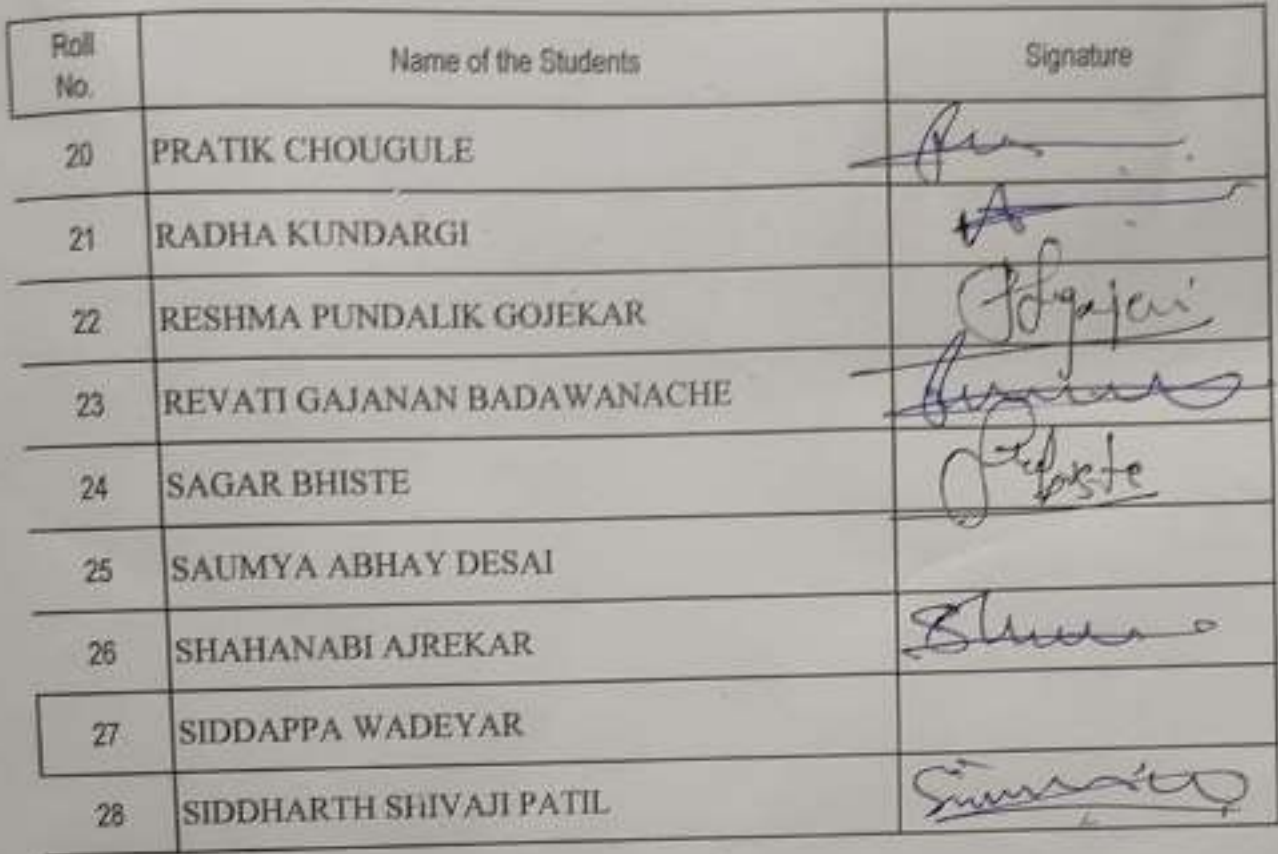 Roll No. Name of the Students Signature
20 PRATIK CHOUGULE
21 RADHA KUNDARGI
22 RESHMA PUNDALIK GOJEKAR
23 REVATI GAJANAN BADAWANACHE
24 SAGAR BHISTE
25 SAUMYA ABHAY DESAI
26 SHAHANABI AJREKAR
27 SIDDAPPA WADEYAR
28 SIDDHARTH SHIVAJI PATIL